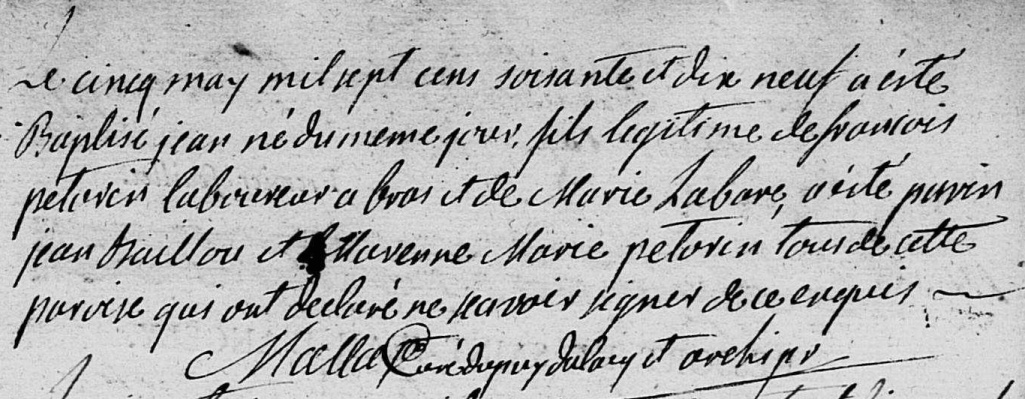 Le cinq may mil sept cens soisante et dix neuf a été
Baptisé jean né du meme jour, fils legitime de francois
petorin laboureur a bras et de Marie Labare, a été parin
jean Baillou et Marenne Marie petorin tous de cette
paroise qui ont declaré ne scavoir signer de ce enquis
Malla Curé dupuy et archipr